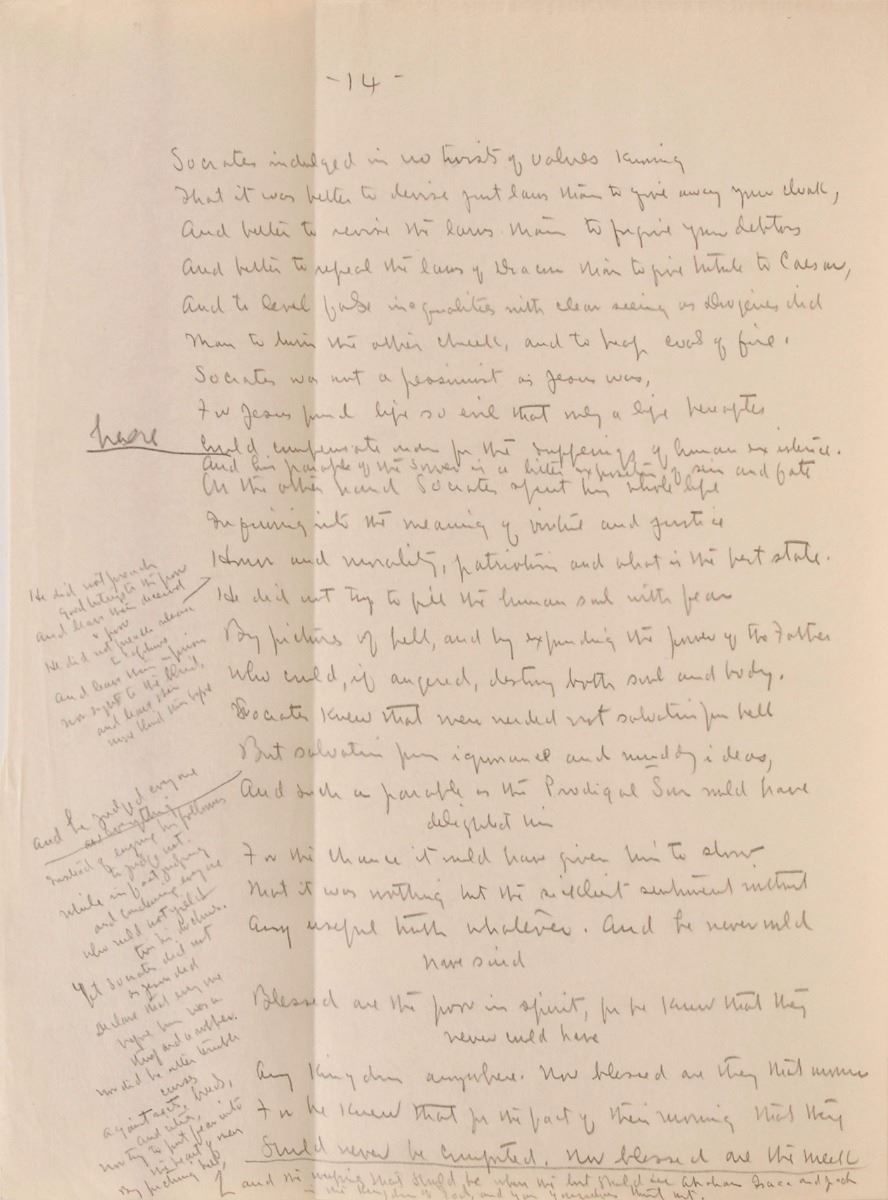 -14-
Socrates indulged in no twists of values knowing
That it was better to devise just laws than to give away your cloak,
And better to revise the laws than to forgive your debtors
And better to repeal the laws of Dracon than to give tribute to Caesar,
And to level false inequalities with clear seeing as Diogenes did
Than to turn the other cheek, and to heap coals of fire.
Socrates was not a pessimist as Jesus was,
For Jesus found life so evil that only a life hereafter
Could compensate men for the sufferings of human existence.
And his parable of the Sower is a bitter exposition of sin and fate
On the other hand Socrates spent his whole life
Inquiring into the meaning of virtue and justice
Honor and morality, patriotism and what is the best state.
He did not preach
good tidings to the poor
and leave them deceived
& poor
He did not preach release
to captives
And leave them in prison
nor sight to the blind,
and leave them
more blind than before
He did not try to fill the human soul with fear
By pictures of hell, and by expounding the power of the Father
Who could, if angered, destroy both soul and body.
Socrates knew that men needed not salvation from hell
But salvation from ignorance and muddy ideas,
and he judged everyone
and everything
Instead of enjoining his followers
to judge not.
While in fact judging
and condemning everyone
who would not yield
to his doctrines.
Yet Socrates did not
as Jesus did
declare that everyone
before him was a
thief and a robber.
nor did he utter terrible
curses
against sects, breeds,
and cities,
nor try to put fear into
the hearts of men
By picturing hell,
And such a parable as the Prodigal Son would have
delighted him
For the chance it would have given him to show
That it was nothing but the sickliest sentiment without
Any useful truth whatever. And he never would
have said
Blessed are the poor in spirit, for he knew that they
never could have
Any kingdom anywhere. Nor blessed are they that mourn
For he knew that for the fact of their mourning that they
Should never be comforted. Nor blessed are the meek
and the weeping that should be when we but should see Abraham Isaac and Jacob
in the kingdom of God, and you yourselves thrust out.